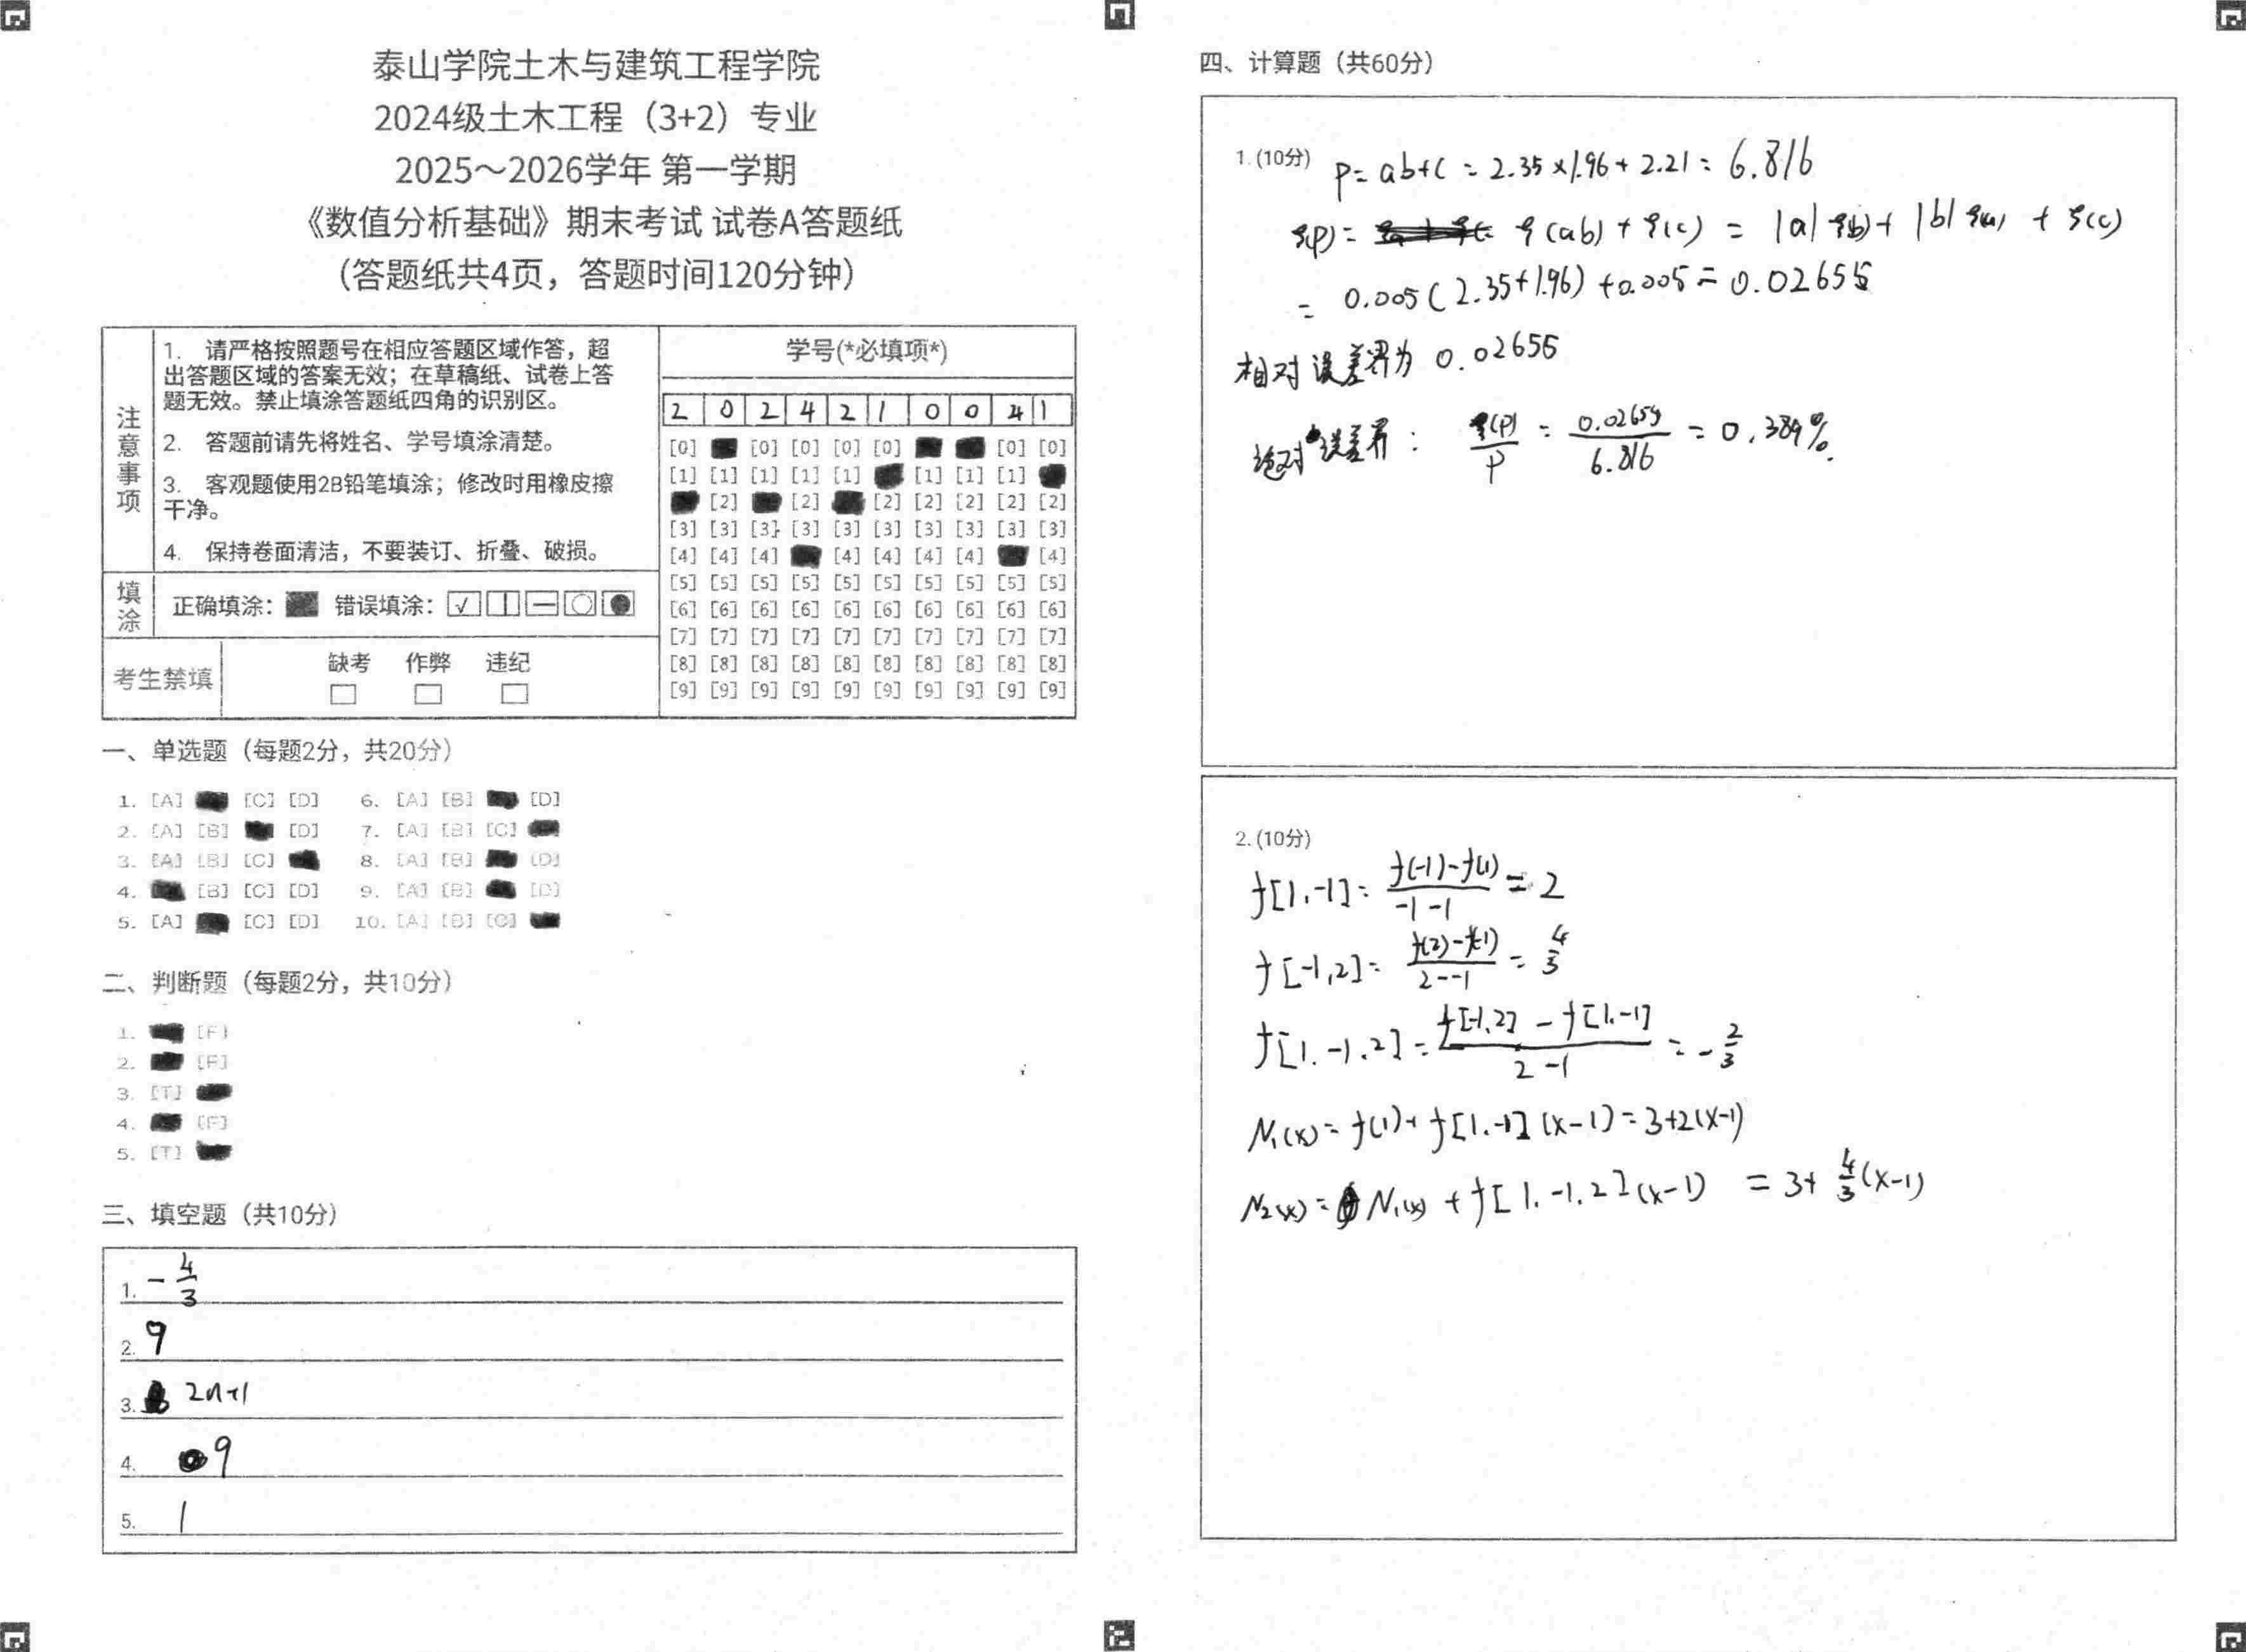 泰山学院土木与建筑工程学院
2024级土木工程（3+2）专业
2025～2026学年 第一学期
《数值分析基础》期末考试 试卷A答题纸
（答题纸共4页，答题时间120分钟）
注意事项
1. 请严格按照题号在相应答题区域作答，超
出答题区域的答案无效；在草稿纸、试卷上答
题无效。禁止填涂答题纸四角的识别区。
2. 答题前请先将姓名、学号填涂清楚。
3. 客观题使用2B铅笔填涂；修改时用橡皮擦
干净。
4. 保持卷面清洁，不要装订、折叠、破损。
填涂
正确填涂： 错误填涂：
考生禁填
缺考 作弊 违纪
学号(*必填项*)
2 0 2 4 2 1 0 0 4 1
[0] [0] [0] [0] [0] [0] [0]
[1] [1] [1] [1] [1] [1] [1] [1]
[2] [2] [2] [2] [2] [2] [2]
[3] [3] [3] [3] [3] [3] [3] [3] [3] [3]
[4] [4] [4] [4] [4] [4] [4] [4]
[5] [5] [5] [5] [5] [5] [5] [5] [5] [5]
[6] [6] [6] [6] [6] [6] [6] [6] [6] [6]
[7] [7] [7] [7] [7] [7] [7] [7] [7] [7]
[8] [8] [8] [8] [8] [8] [8] [8] [8] [8]
[9] [9] [9] [9] [9] [9] [9] [9] [9] [9]
一、单选题（每题2分，共20分）
1. [A] [C] [D] 6. [A] [B] [D]
2. [A] [B] [D] 7. [A] [B] [C]
3. [A] [B] [C] 8. [A] [B] [D]
4. [B] [C] [D] 9. [A] [B] [D]
5. [A] [C] [D] 10. [A] [B] [C]
二、判断题（每题2分，共10分）
1. [F]
2. [F]
3. [T]
4. [F]
5. [T]
三、填空题（共10分）
1. -4/3
2. 9
3. 2n+1
4. 9
5. 1
四、计算题（共60分）
1.(10分) P= ab+c = 2.35×1.96+2.21= 6.816
ε(p)= ε(ab)+ε(c) = |a|ε(b)+|b|ε(a) + ε(c)
= 0.005(2.35+1.96)+0.005=0.02655
相对误差界为 0.02655
绝对误差界： ε(p)/p = 0.02655/6.816 = 0.389%.
2.(10分)
f[1,-1]= (f(-1)-f(1))/(-1-1) = 2
f[-1,2]= (f(2)-f(-1))/(2--1) = 4/3
f[1.-1.2]= (f[-1.2]-f[1.-1])/(2-1) = -2/3
N₁(x)= f(1)+f[1.-1](x-1)=3+2(x-1)
N₂(x)= N₁(x)+f[1.-1.2](x-1) = 3+4/3(x-1)